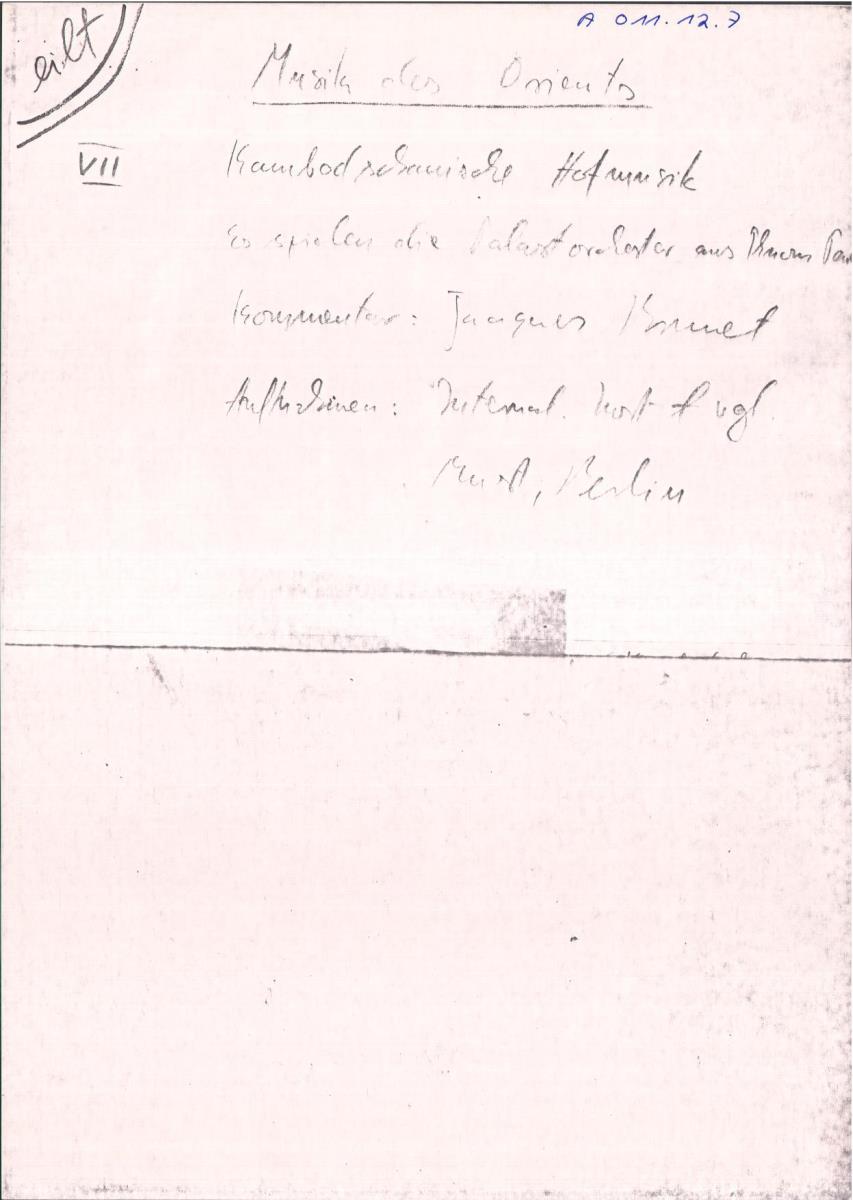 A 011.12.7
eilt
Musik des Orients
VII Kambodschanische Hofmusik
Es spielen die Palastorchester aus Phnom Pen
Kommentar: Jacques Brunet
Aufnahmen: Internat. Inst f vgl.
Musik, Berlin